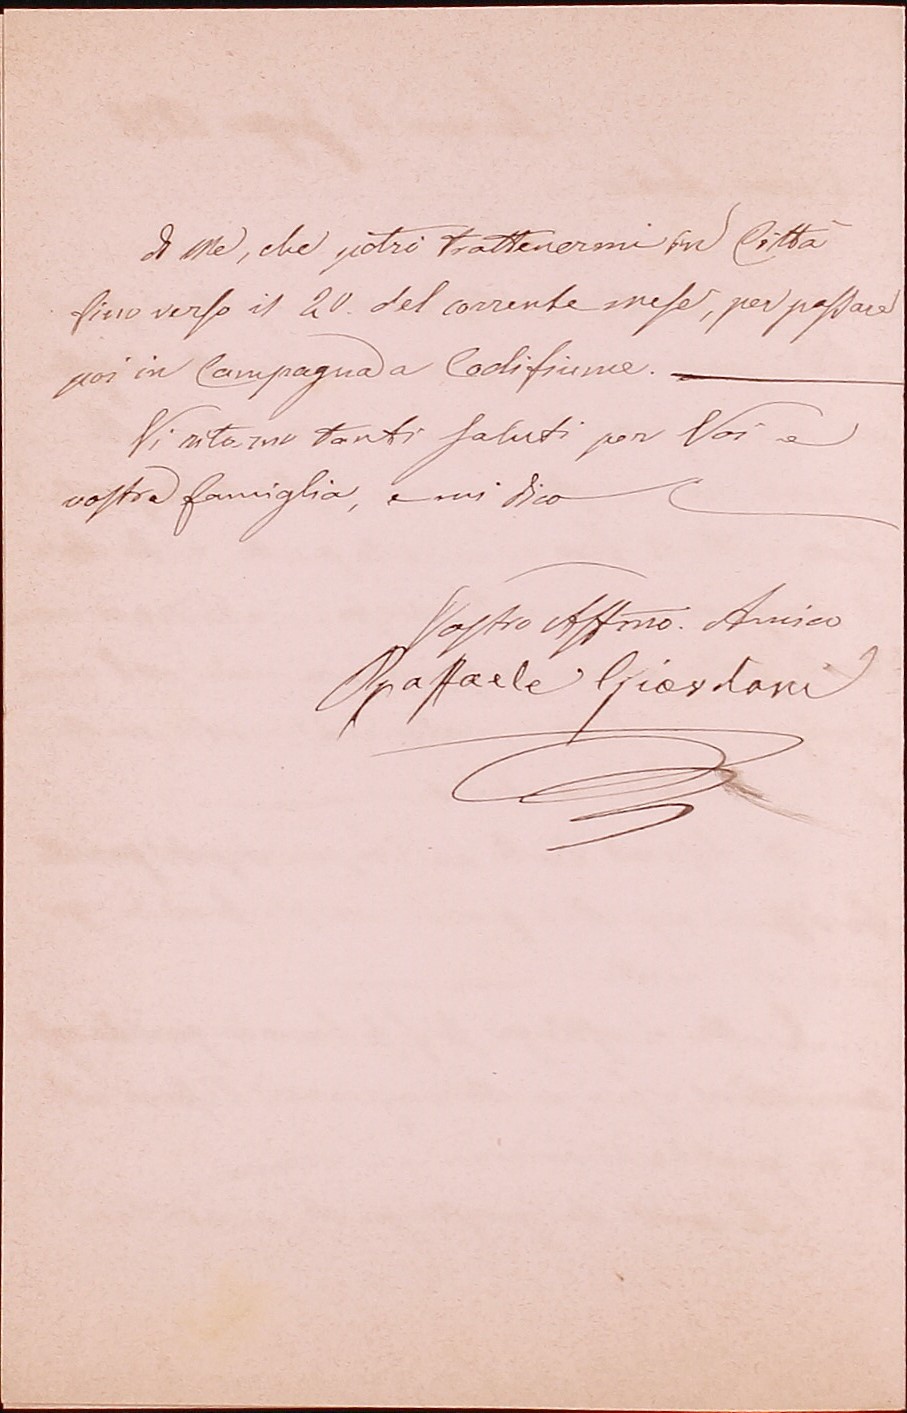 di me, che potrò trattenermi in Città
fino verso il 20. del corrente mese, per passare
poi in Campagna a Codifiume.
Vi ritorno tanti saluti per Voi e
vostra famiglia, e mi dico
Vostro Affmo. Amico
Raffaele Giordani